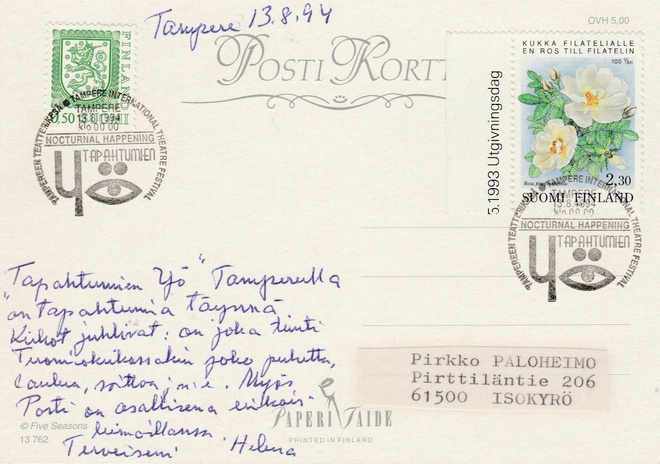 Tampere 13.8.94
OVH 5,00
FINLAND
0,50 SUOMI
POSTI KORTTI
5.1993 Utgivningsdag
KUKKA FILATELIALLE
EN ROS TILL FILATELIN
100
2,30
SUOMI FINLAND
TAMPEREEN TEATTERIKESÄ • TAMPERE INTERNATIONAL THEATRE FESTIVAL
TAMPERE
13.8.1994
klo 00.00
NOCTURNAL HAPPENING
TAPAHTUMIEN
YÖ
TAMPEREEN TEATTERIKESÄ • TAMPERE INTERNATIONAL THEATRE FESTIVAL
TAMPERE
13.8.1994
klo 00.00
NOCTURNAL HAPPENING
TAPAHTUMIEN
YÖ
"Tapahtumien Yö" Tampereella
on tapahtumia täynnä
Kirkot juhlivat: on joka tunti
Tuomiokirkossakin joko puhetta,
laulua, soittoa, n.e. Myös
Posti on osallisena erikois-
leimoillansa.
Terveiseni Helena
Pirkko PALOHEIMO
Pirttiläntie 206
61500 ISOKYRÖ
PAPERI TAIDE
PRINTED IN FINLAND
© Five Seasons
13 762